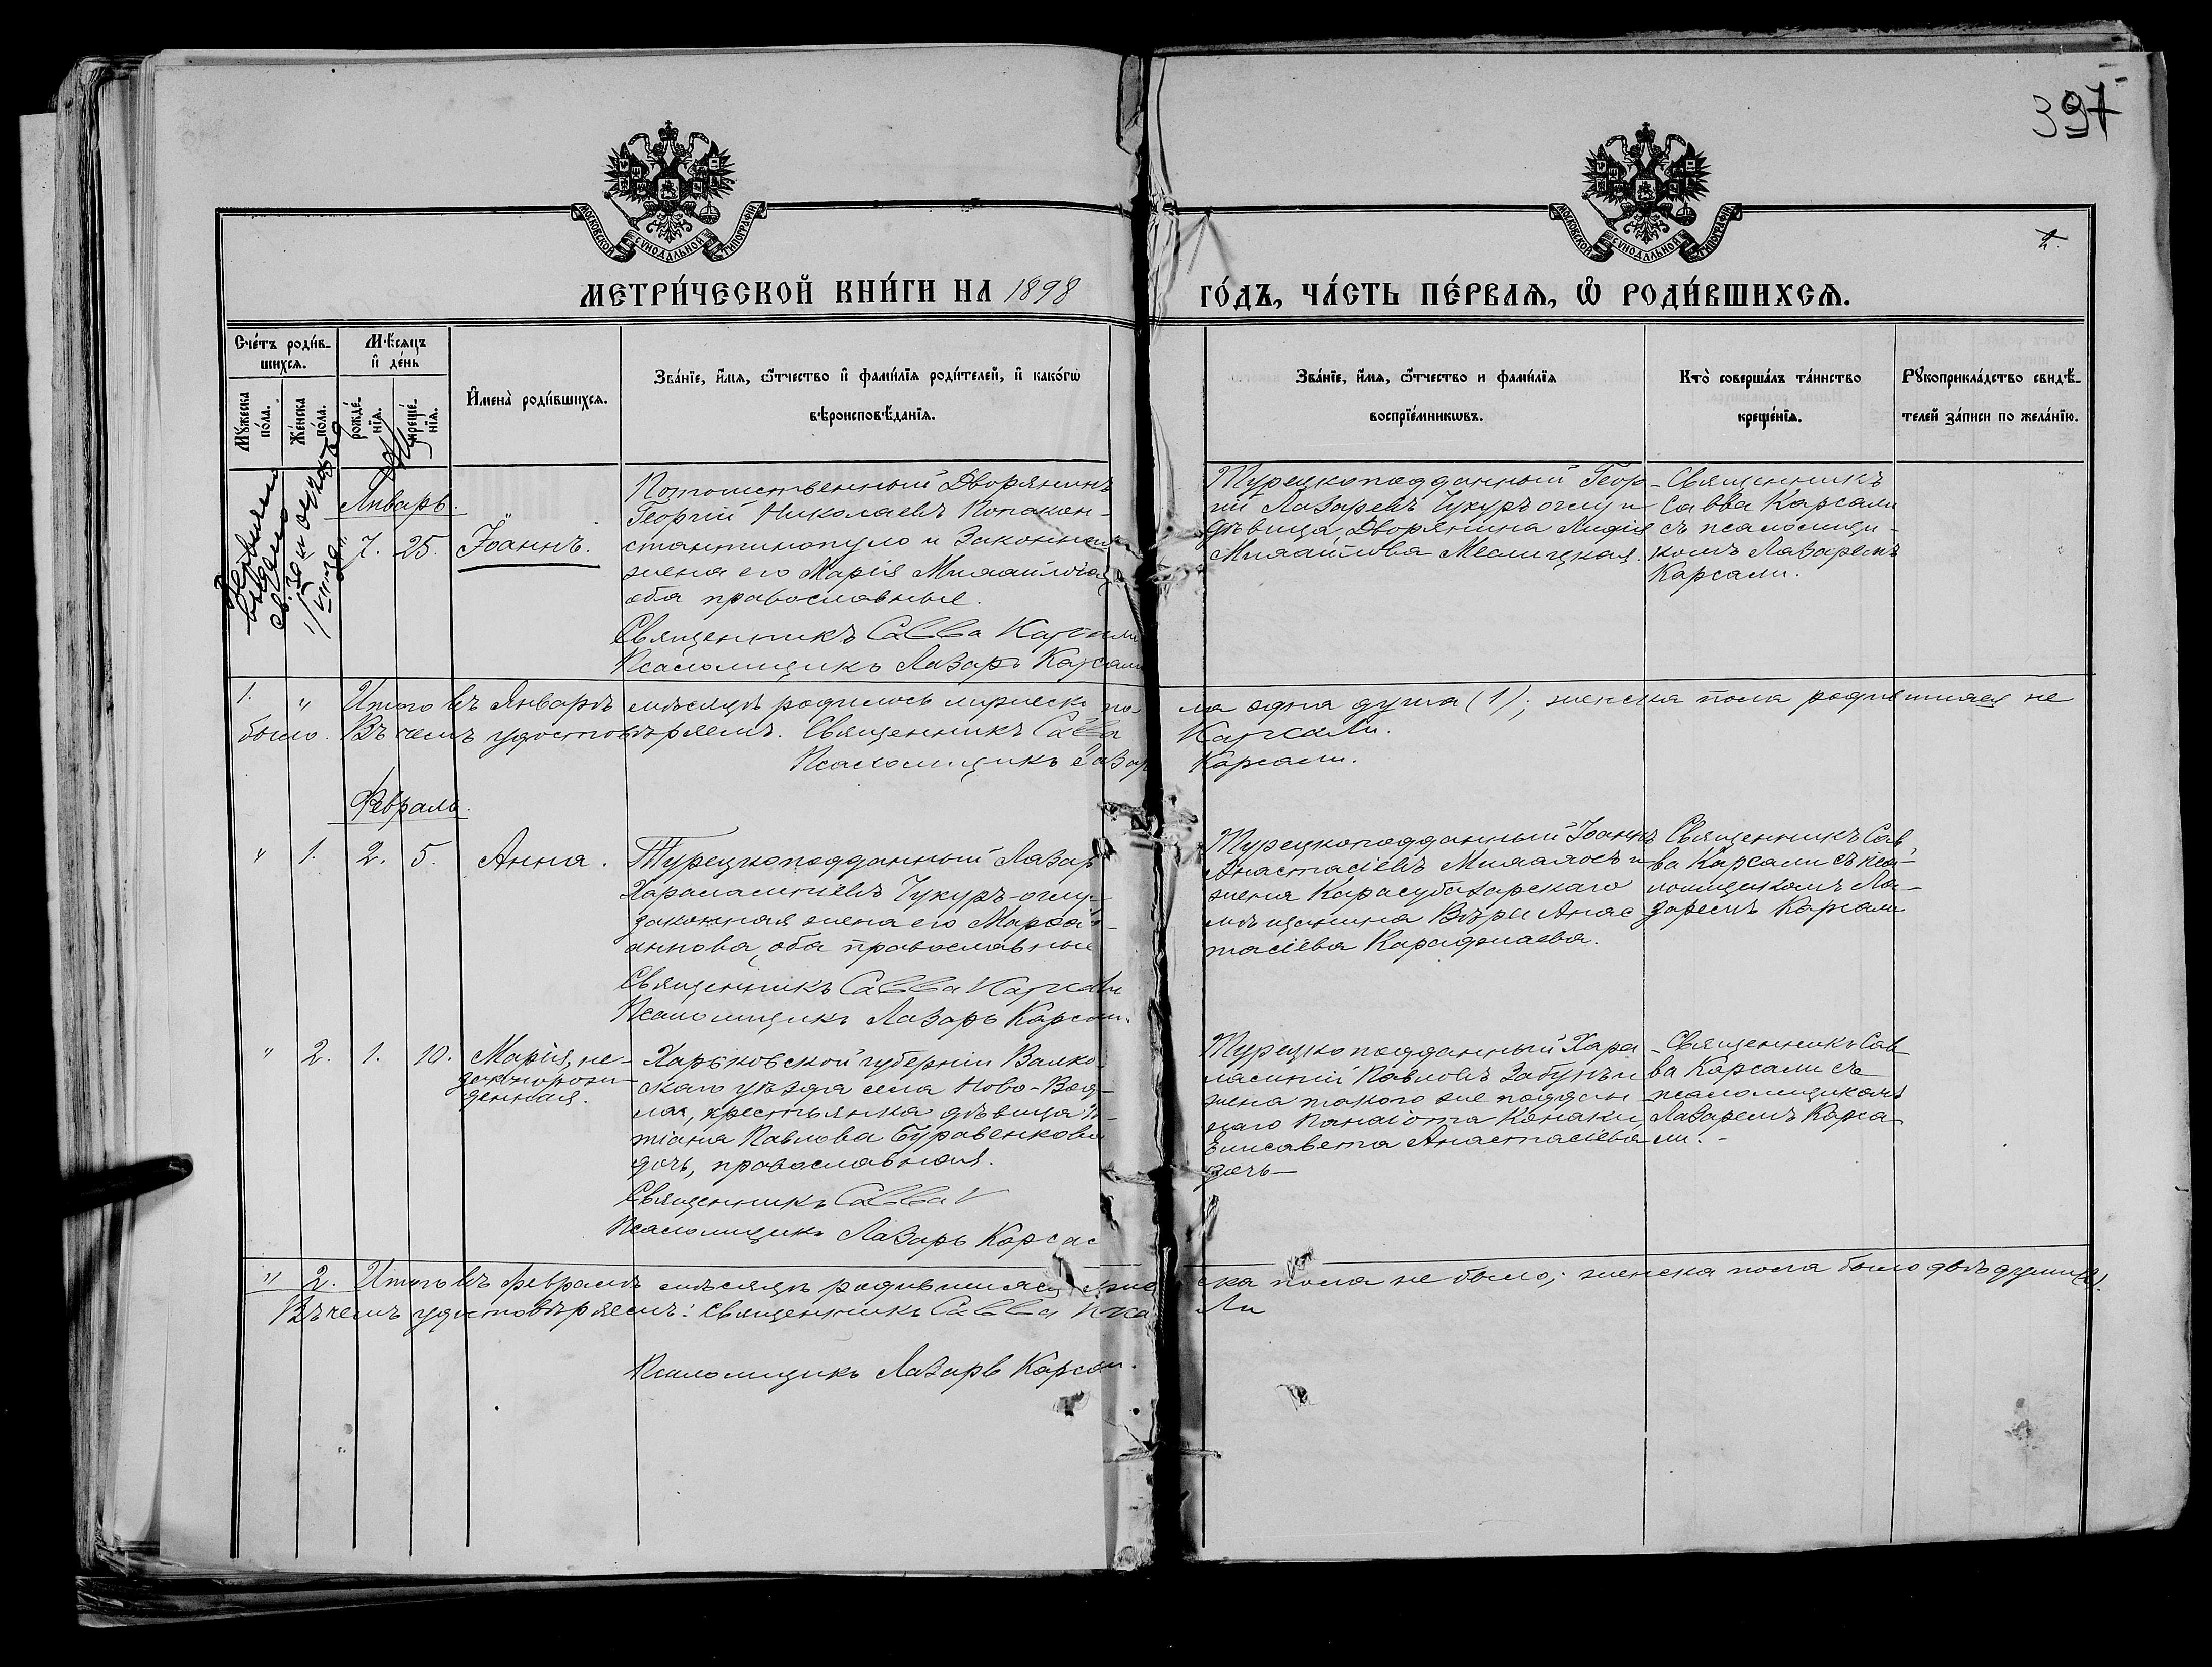 397
МОСКОВСКОЙ СУНОДАЛЬНОЙ ТИПОГРАФІИ
МОСКОВСКОЙ СУНОДАЛЬНОЙ ТИПОГРАФІИ
МЕТРИ́ЧЕСКОЙ КНИ́ГИ НА 1898
ГО́ДЪ, ЧА́СТЬ ПЕ́РВАѦ, Ѡ РОДИ́ВШИХСѦ.
Сче́тъ роди́в-
шихсѧ.
Мꙋжеска по́ла.
Же́нска по́ла.
Мѣ́сѧцъ и де́нь
рожде́нїѧ.
креще́нїѧ.
И҆мена̀ роди́вшихсѧ.
Зва́нїе, и҆́мѧ, ѻ҆́тчество и҆ фами́лїѧ роди́телей, и҆ како́гѡ
вѣроисповѣ́данїѧ.
Зва́нїе, и҆́мѧ, ѻ҆́тчество и фами́лїѧ
воспрїе́мникѡвъ.
Кто̀ соверша́лъ та́инство
креще́нїѧ.
Рꙋкоприкла́дство свидѣ́-
телей за́писи по жела́нїю.
Январь.
7. 25. Іоаннъ.
Потомственный Дворянинъ
Георгій Николаевъ Попакон-
стантинопуло и Законная
жена его Марія Михайлова
оба православные.
Священникъ Савва Карсали
Псаломщикъ Лазарь Карсали
Турецкоподданный Геор-
гій Лазаревъ Чукуръ оглу и
дѣвица, Дворянина Лидія
Михайлова
Священникъ
Савва Карсали
съ псаломщи-
комъ Лазаремъ
Карсали.
1. " Итого въ Январѣ мѣсяцѣ родилось мужеска по ла одна душа (1); женска пола родившихся не
было. Въ чемъ удостовѣряемъ. Священникъ Савва Карсали.
Псаломщикъ Лазарь Карсали.
Февраль.
" 1. 2. 5. Анна.
Турецкоподданный Лазарь
Харалампіевъ Чукуръ-оглу
законная жена его Марфа
аннова, оба православные
Священникъ Савва Карсали
Псаломщикъ Лазарь Карсали.
Турецкоподданный Іоаннъ
Анастасіевъ и
жена Карасубазарскаго
мѣщанина Вѣра Анас
тасіева
Священникъ Сав-
ва Карсали съ пса-
ломщикомъ Ла-
заремъ Карсали
" 2. 1. 10. Марія, не-
законорож-
денная.
Харьковской губерніи Валков-
скаго уѣзда села Ново-Водо-
лаг, крестьянка дѣвица Та-
тіана Павлова Буравенкова
дочь, православная.
Священникъ Савва
Псаломщикъ Лазарь Карсас
Турецкоподданный Хара
лампій Павловъ и
жена такого же поддан-
наго Панаіота Конаки,
Елисавета Анастасіева
дочь—
Священникъ Сав-
ва Карсали съ
псаломщикомъ
Лазаремъ Карса-
ли.-
" 2. Итого въ Февралѣ мѣсяцѣ родившихся муже ска пола не было; женска пола было двѣ души (2).
Въ чемъ удостовѣряемъ: Священникъ Савва Карса ли
Псаломщикъ Лазарь Карсали.